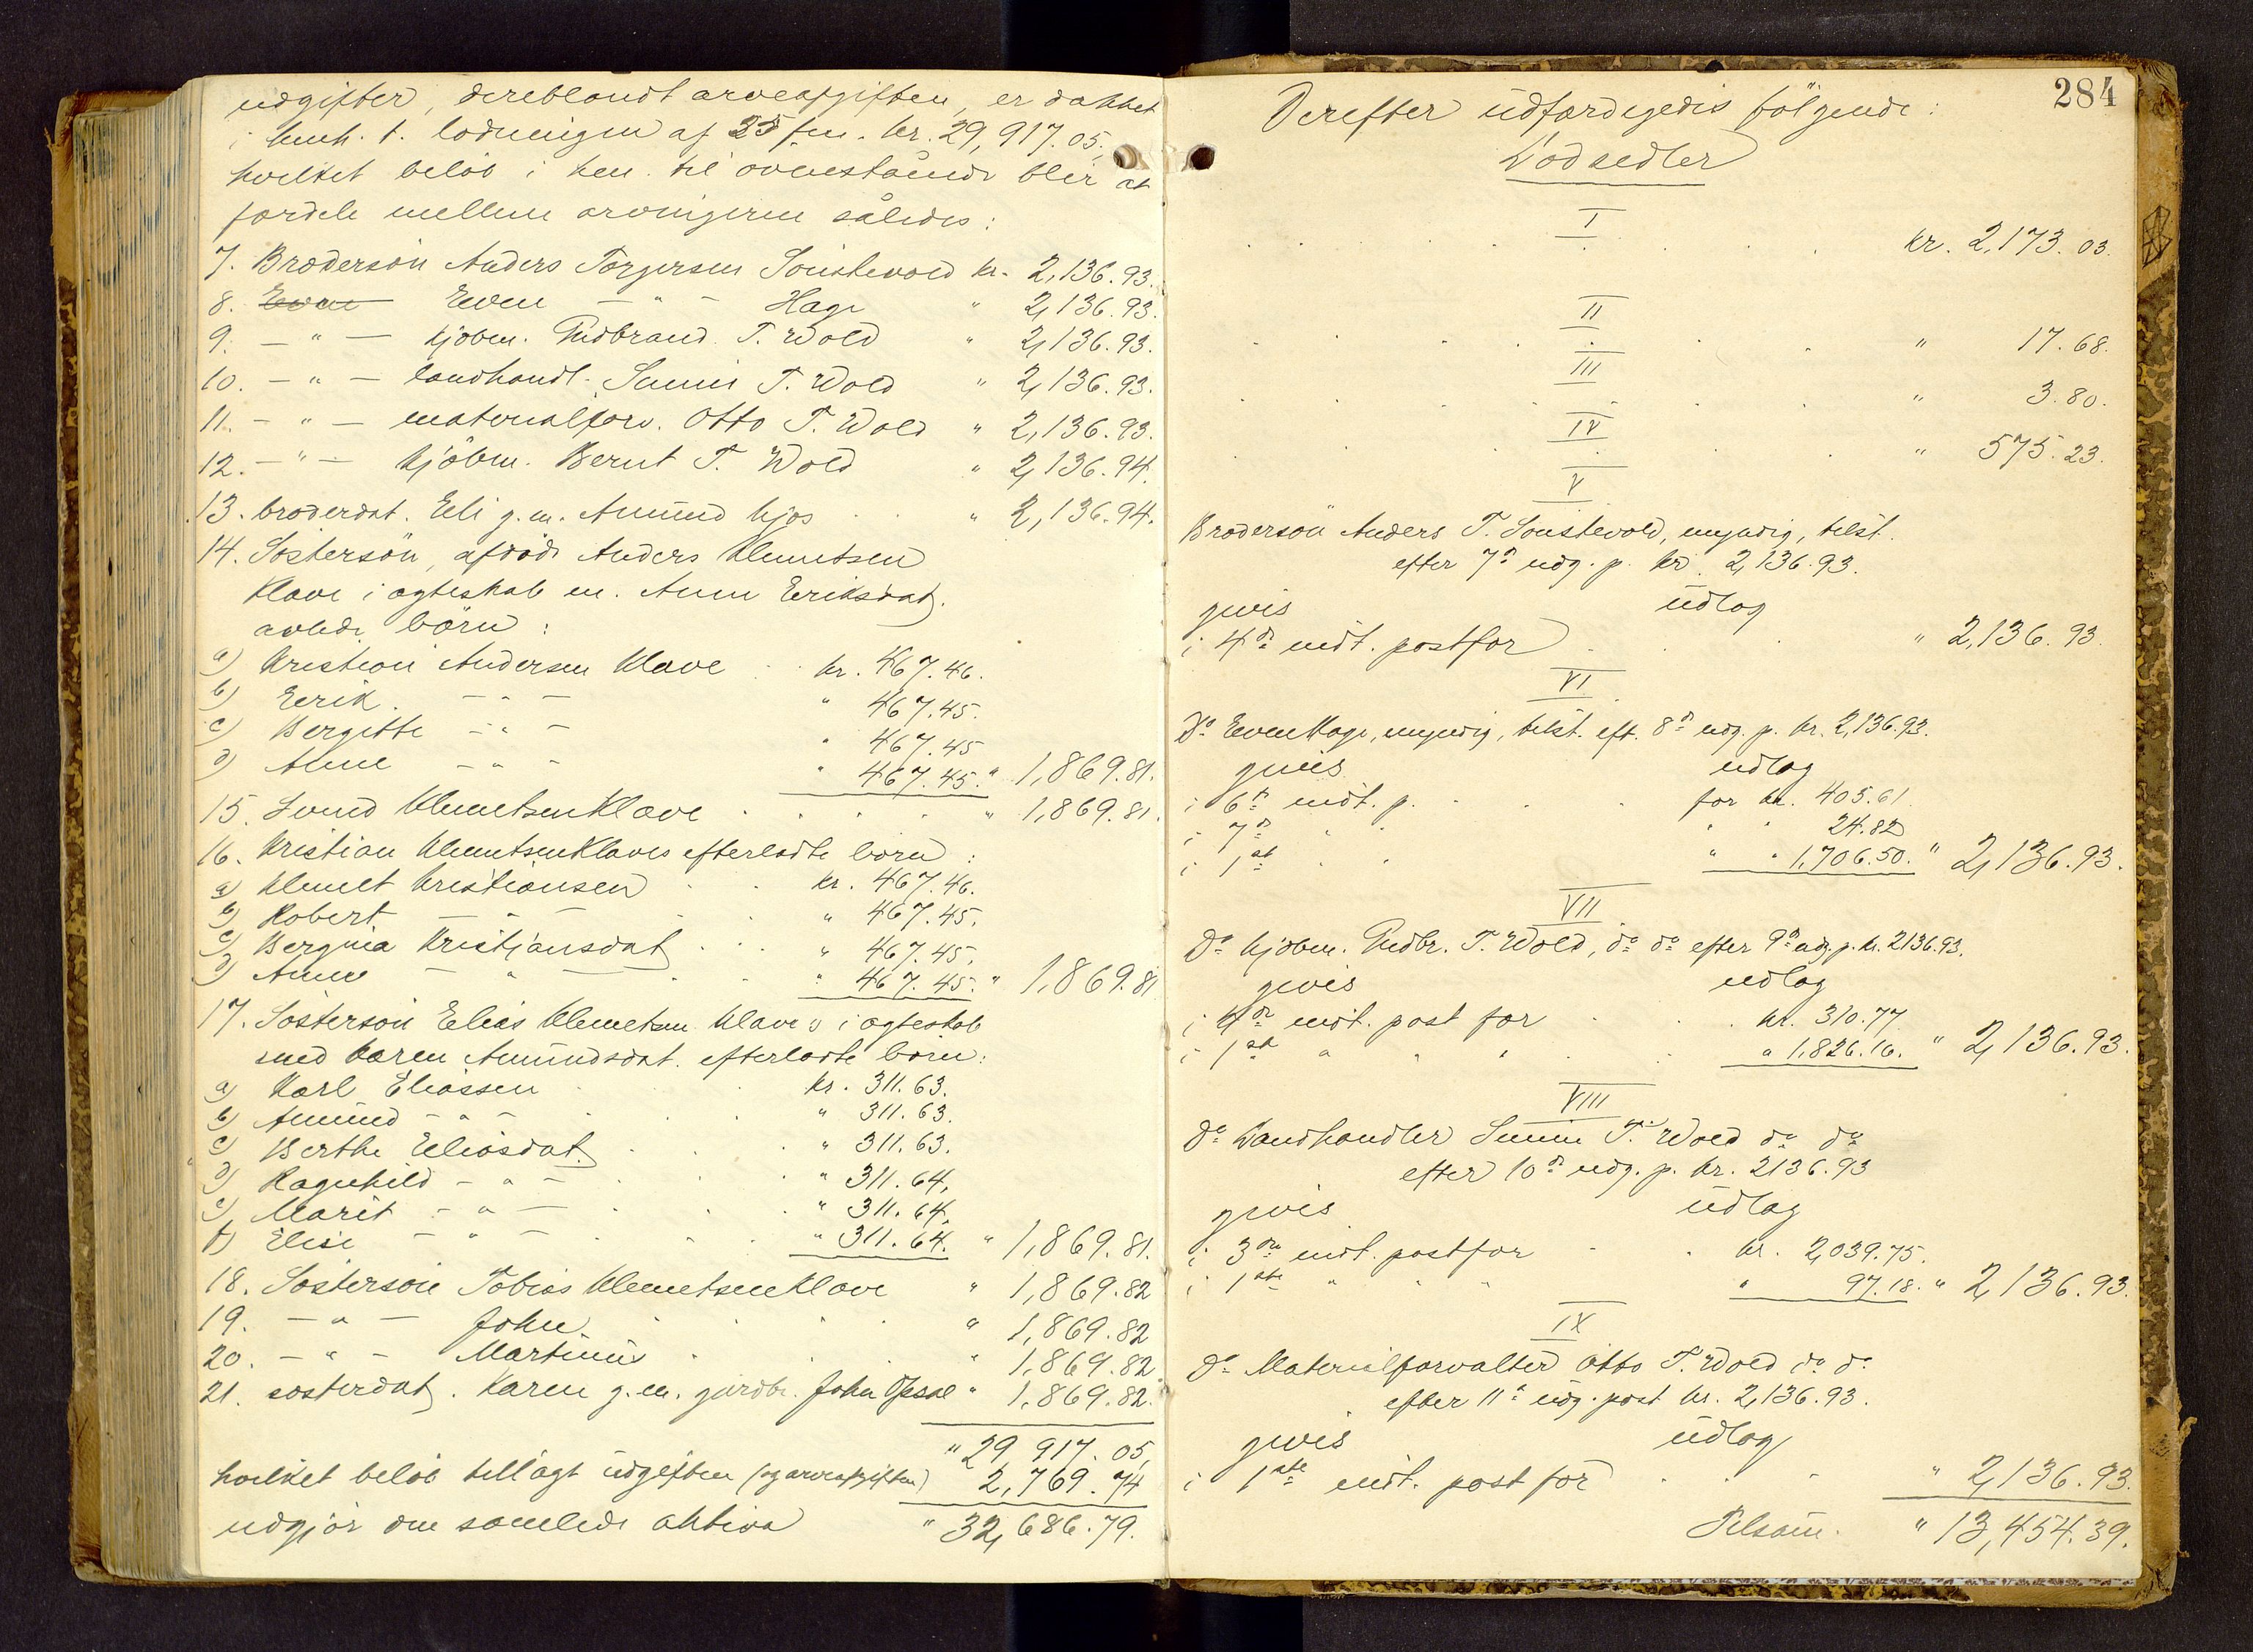 udgifter, dereblandt arveafgiften, er dækket
i henh. t. lodningen af 25 jan. kr. 29,917.05,
hvilket beløb i hen. til ovenstående blir at
fordele mellem arvingerne således:
7. Brodersön Anders Torgersen Sönstevold kr. 2,136.93.
8. Even Even — " — Hage " 2,136.93.
9. — " — kjöbm. Gudbrand T. Wold " 2,136.93.
10. — " — landhandl. Simen T. Wold " 2,136.93.
11. — " — materialforv. Otto T. Wold " 2,136.93.
12. — " — kjöbm. Bernt T. Wold " 2,136.94.
13. broderdat. Eli g. m. Amund Kjos " 2,136.94.
14. Söstersön, afdöde Anders Klemetsen
Klave i ægteskab m. Anne Eriksdat.
avlede börn:
a) Kristian Andersen Klave kr. 467.46.
b) Erik — " — " 467.45.
c) Bergitte — " — " 467.45
d) Anne — " — " 467.45. " 1,869.81.
15. Svend Klemetsen Klave " 1,869.81.
16. Kristian Klemetsen Klaves efterladte börn:
a) Klemet Kristiansen kr. 467.46.
b) Robert — " — " 467.45.
c) Bergina Kristjansdat. " 467.45.
d) Anne — " — " 467.45. " 1,869.81
17. Söstersön Elias Klemetsen Klaves i ægteskab
med Karen Amundsdat. efterladte börn:
a) Karl Eliassen kr. 311.63.
b) Amund — " — " 311.63.
c) Berthe Eliasdat. " 311.63.
d) Ragnhild — " — " 311.64,
e) Marit — " — " 311.64.
f) Elise — " — " 311.64. " 1,869.81.
18. Söstersön Tobias Klemetsen Klave " 1,869.82
19. — " — John " 1,869.82
20. — " — Martinus " 1,869.82
21. sösterdat. Karen g. m. gårdbr. John Opsal " 1,869.82.
" 29,917.05,
hvilket belöb tillagt udgiften (og arveafgiften) 2,769.74
udgjör den samlede aktiva " 32,686.79.
284
Derefter udfærdigedes fölgende:
Lodsedler
I
kr. 2,173.03.
II
" 17.68.
III
" 3.80.
IV
" 575.23.
V
Brodersön Anders T. Sönstevold, myndig, tilst.
efter 7de udg. p. kr. 2,136.93.
gives udlæg
i 4de indt. post for " 2,136.93.
VI
Do Even Hage, myndig, tilst. eft. 8de udg. p. kr. 2,136.93.
gives udlæg
i 6te indt. p. for kr. 405.61.
i 7de " " " " 24.82
i 1ste " " " " 1,706.50. " 2,136.93.
VII
Do kjöbm. Gudbr. T. Wold, do do efter 9de udg. p. kr. 2136.93.
gives udlæg
i 4de indt. post for kr. 310.77
i 1ste " " " " 1,826.16. " 2,136.93.
VIII
Do Landhandler Simen T. Wold do do
efter 10de udg. p. kr. 2136.93
gives udlæg
i 3die indt. post for kr. 2,039.75.
i 1ste " " " " 97.18. " 2,136.93.
IX
Do Materialforvalter Otto T. Wold do do
efter 11te udg. post kr. 2,136.93.
gives udlæg
i 1ste indt. post for " 2,136.93.
Tilsam. " 13,454.39.